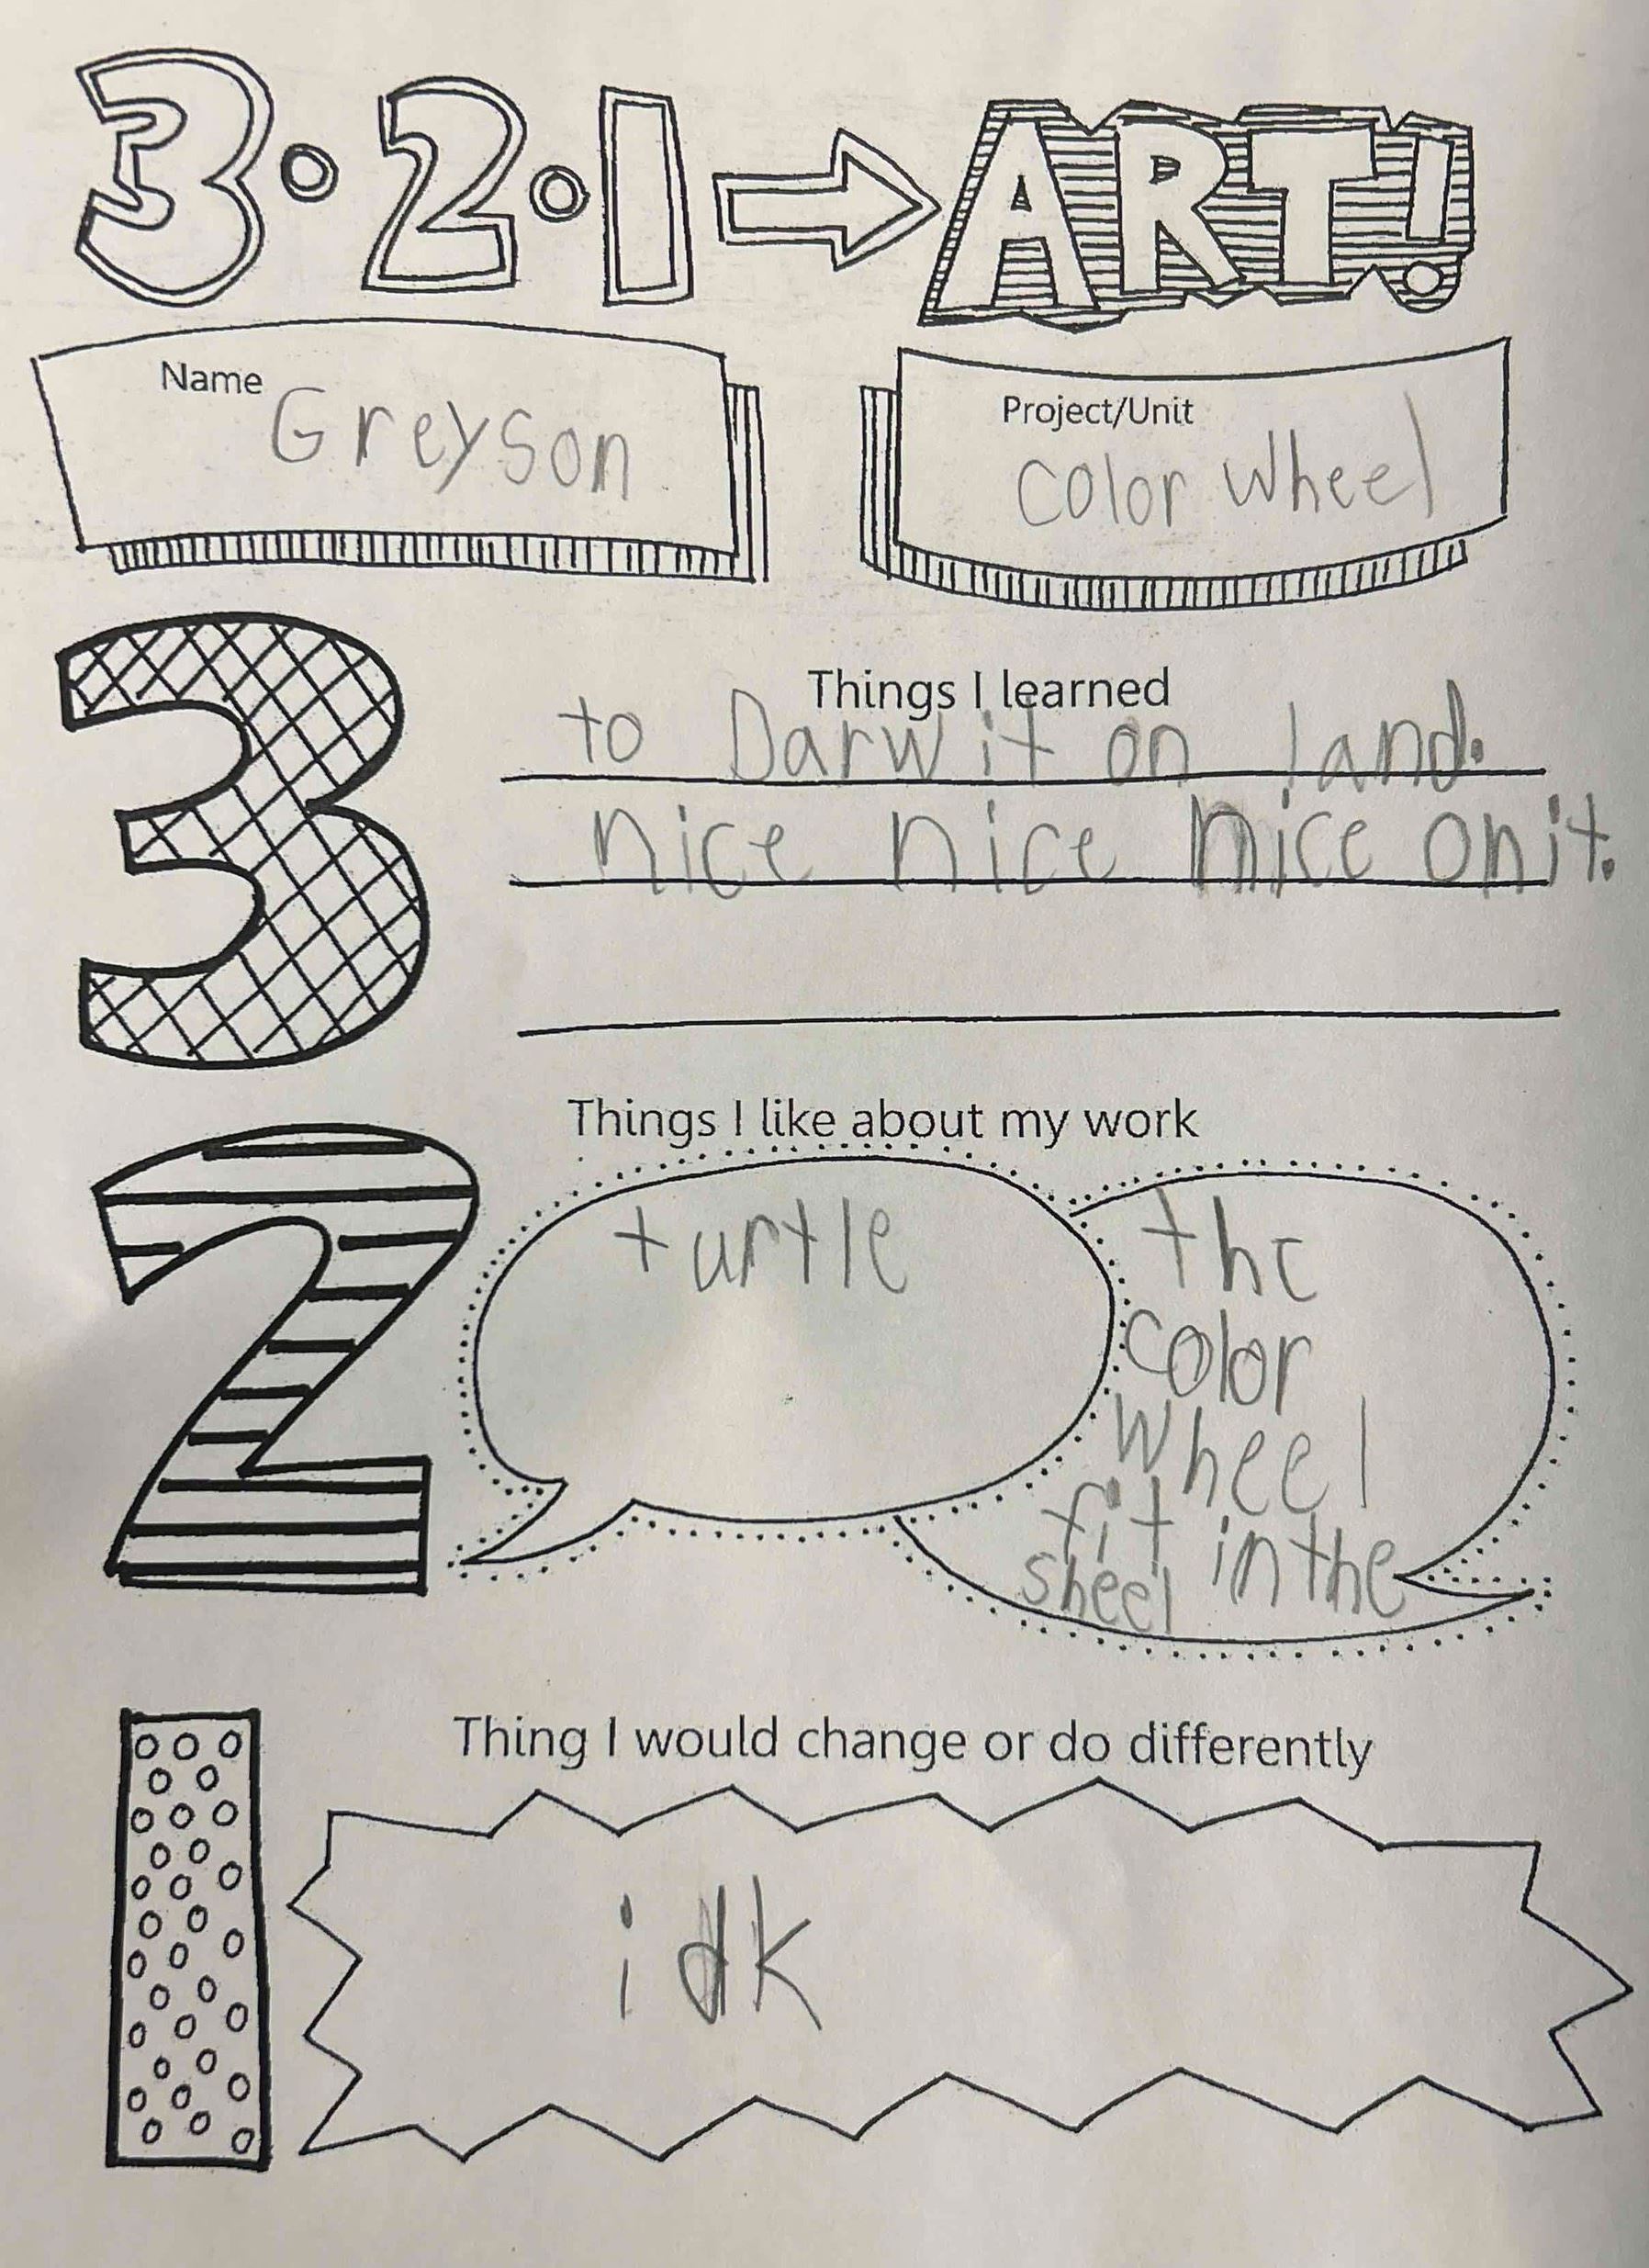 3·2·1 → ART!
Name
Greyson
Project/Unit
color wheel
3
Things I learned
to Darw it on land.
nice nice nice on it.
2
Things I like about my work
turtle
the
color
wheel
fit in the
sheel
1
Thing I would change or do differently
idk